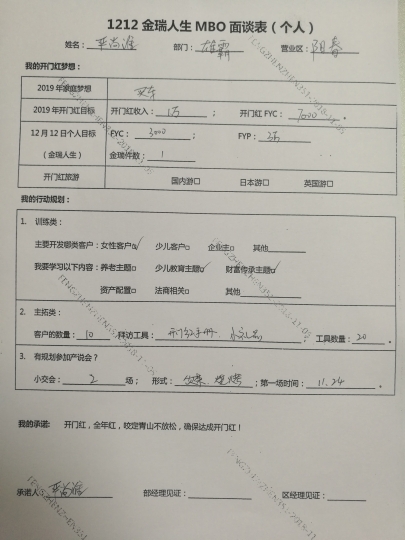 1212 金瑞人生 MBO 面谈表（个人）
姓名： 部门：雄霸 营业区：阳春
我的开门红梦想：
2019 年家庭梦想 买车
2019 年开门红目标 开门红收入：1万 ； 开门红 FYC：7000 。
12 月 12 日个人目标（金瑞人生） FYC：3000 ； FYP：2万
金瑞件数：1
开门红旅游 国内游□ 日本游□ 英国游□
我的行动规划：
1. 训练类：
主要开发哪类客户：女性客户□√ 少儿客户□ 企业主□ 其他
我要学习以下内容：养老主题□ 少儿教育主题□√ 财富传承主题□√
资产配置□ 法商相关□ 其他
2. 主拓类：
客户的数量：10 拜访工具：开门红手册、小礼品 ；工具数量：20 。
3. 有规划参加产说会？
小交会：2 场； 形式： 烧烤 ；第一场时间：11.24 。
我的承诺： 开门红，全年红，咬定青山不放松，确保达成开门红！
承诺人： 部经理见证： 区经理见证：